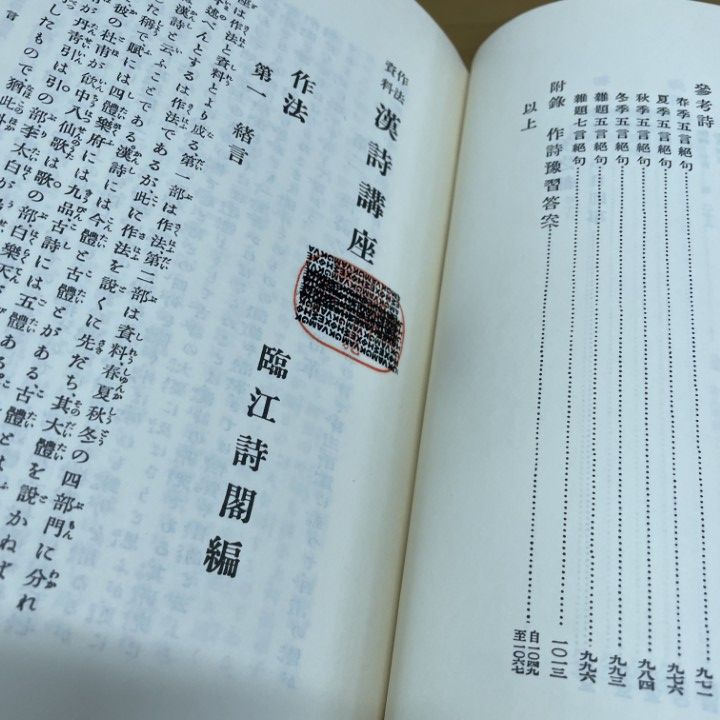 參考詩
春季五言絶句……九七一
夏季五言絶句……九七六
秋季五言絶句……九八四
冬季五言絶句……九九三
雜題五言絶句……九九六
雜題七言絶句……一〇一三
附錄 作詩豫習答案……自一〇四九至一〇六七
以上
作法資料 漢詩講座
臨江詩閣編
作法
第一 緒言
座は作法と資料とより成る第一部は作法第二部は資料春夏秋冬の四部門に分れ
述べんとするは作法であるが、此に作法を說くに先だち、其大體を說かねば
漢詩と云ふことである漢詩には今體と古體とがある、古體
た稱で賦には四體樂府には九品古詩には五體ある
彼の杜甫が飮中八仙歌は歌の部白樂天が
が丹靑引は引の部李太白が
したもので猶此外
言